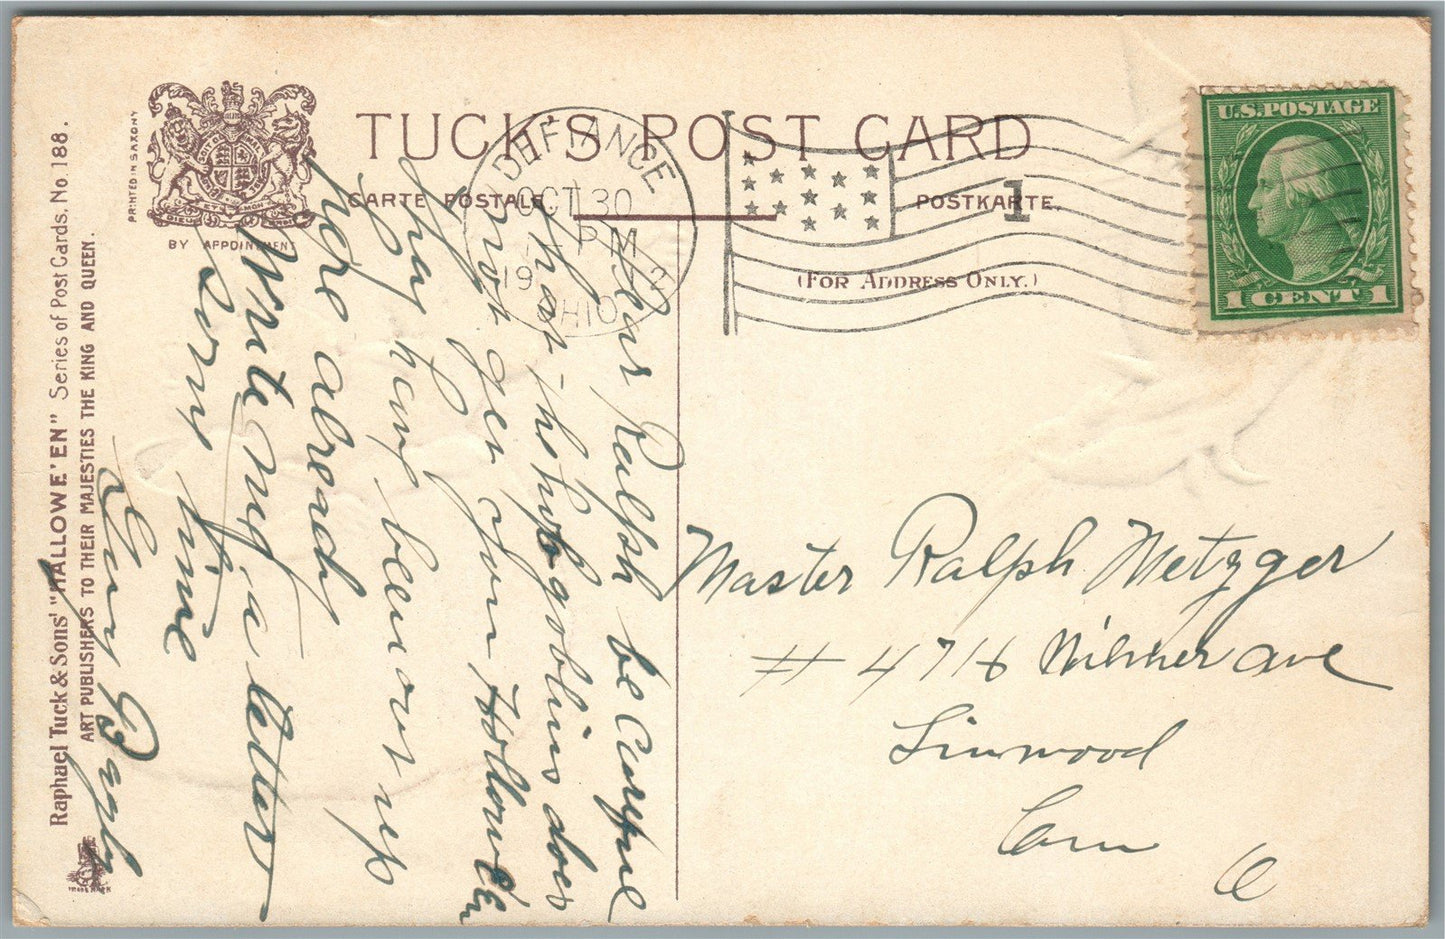 TUCK'S POST CARD
CARTE POSTALE
POSTKARTE.
(FOR ADDRESS ONLY.)
PRINTED IN SAXONY
BY APPOINTMENT
Raphael Tuck & Sons' "HALLOWE'EN" Series of Post Cards. No. 188.
ART PUBLISHERS TO THEIR MAJESTIES THE KING AND QUEEN.
TRADE MARK
DEFIANCE
OCT 30
PM
19 2
OHIO
1
U.S. POSTAGE
1 CENT 1
Dear Ralph be Careful
that the hobgoblins does
not get you Hollow E'En
they have been out up
here already
Write me a letter
some time
Master Ralph Metzger
# 4716 Ave
Linwood
Cin
O